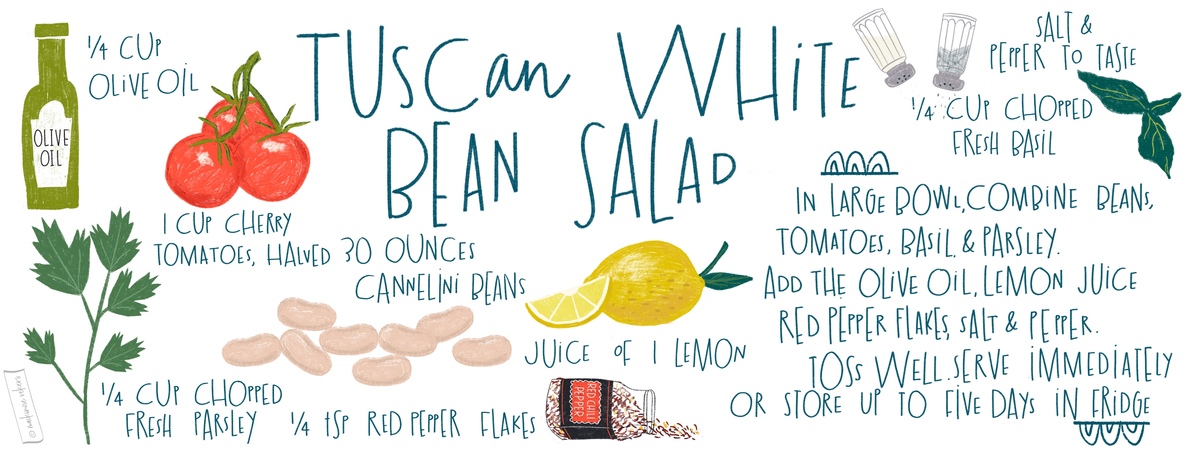 TUSCan WHiTE
BEAN SALAD
1/4 CUP
OLIVE OIL
OLIVE
OIL
1 CUP CHERRY
TOMATOES, HALVED
30 OUNCES
CANNELINI BEANS
1/4 CUP CHOPPED
FRESH PARSLEY
1/4 tSP RED PEPPER FLAKES
RED CHILI
PEPPER
JUICE OF 1 LEMON
SALT &
PEPPER TO TASTE
1/4 CUP CHOPPED
FRESH BASIL
IN LARGE BOWL, COMBINE BEANS,
TOMATOES, BASIL & PARSLEY.
ADD THE OLIVE OIL, LEMON JUICE
RED PEPPER FLAKES, SALT & PEPPER.
TOSS WELL. SERVE IMMEDIATELY
OR STORE UP TO FIVE DAYS IN FRIDGE